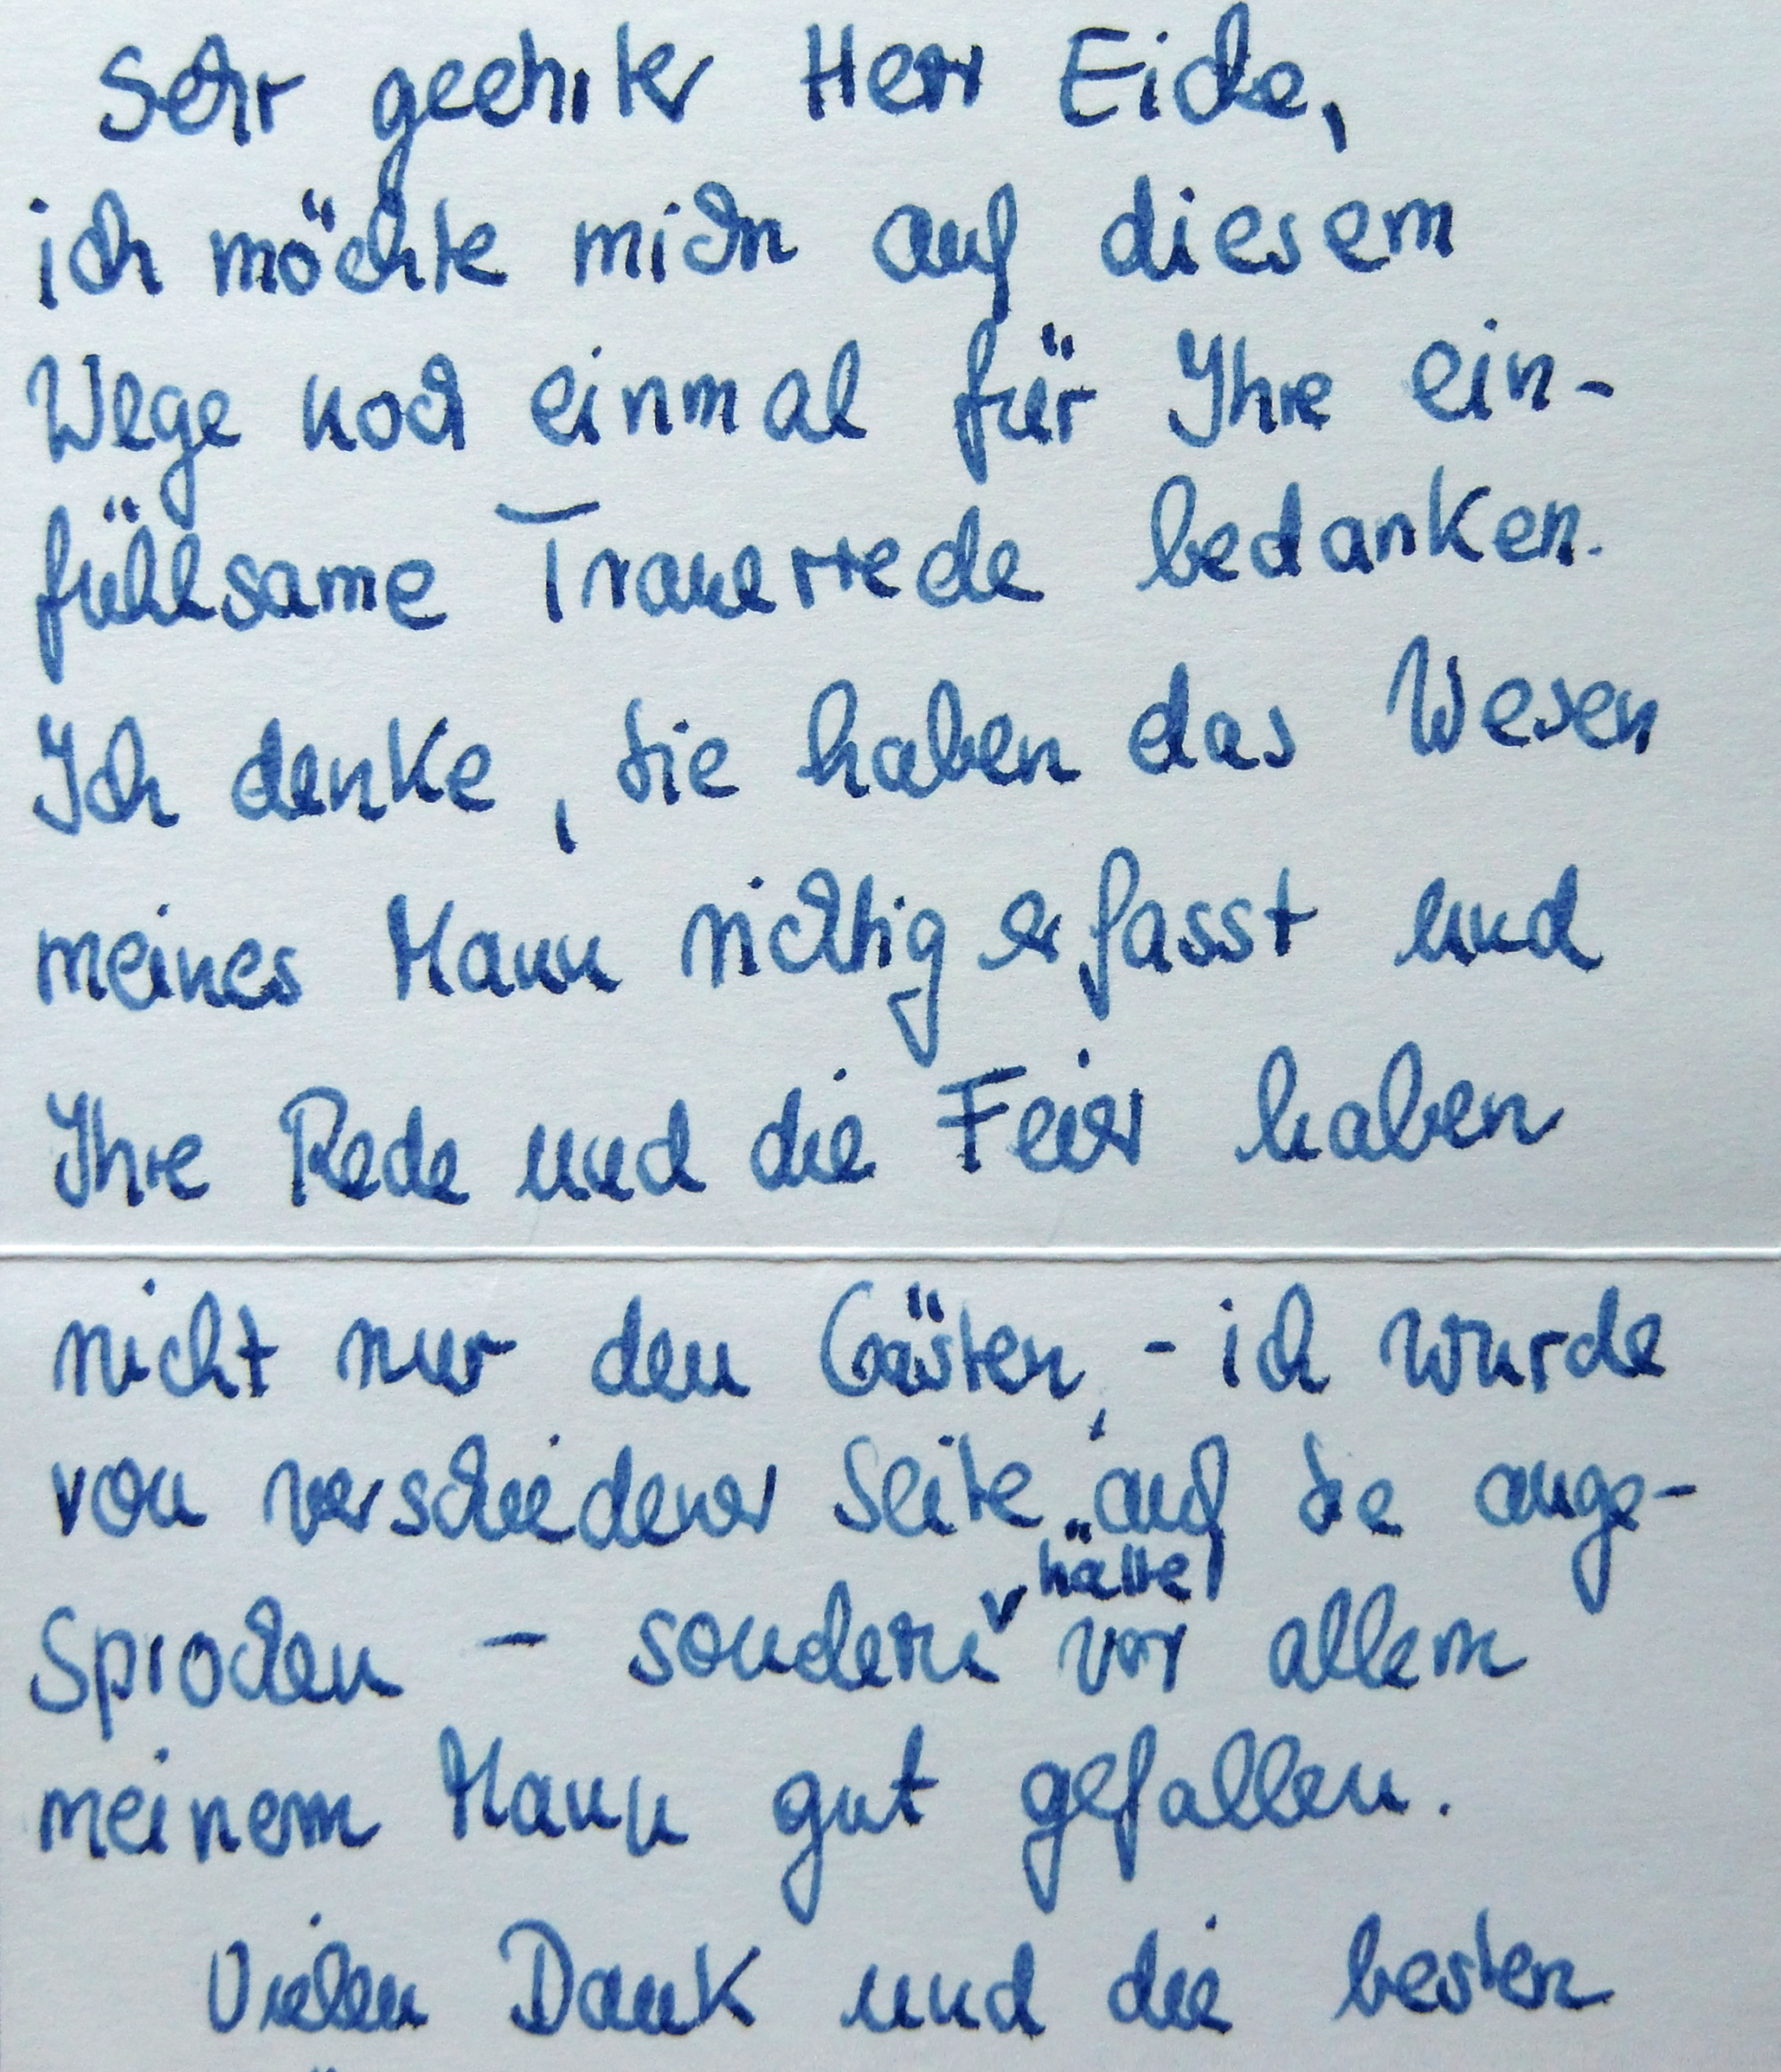 Sehr geehrter Herr Eicke,
ich möchte mich auf diesem
Wege noch einmal für Ihre ein-
fühlsame Trauerrede bedanken.
Ich denke, Sie haben das Wesen
meines Mann richtig erfasst und
Ihre Rede und die Feier haben
nicht nur den Gästen, - ich wurde
von verschiedener Seite auf Sie ange-
sprochen - sondern
hätte
vor allem
meinem Mann gut gefallen.
Vielen Dank und die besten